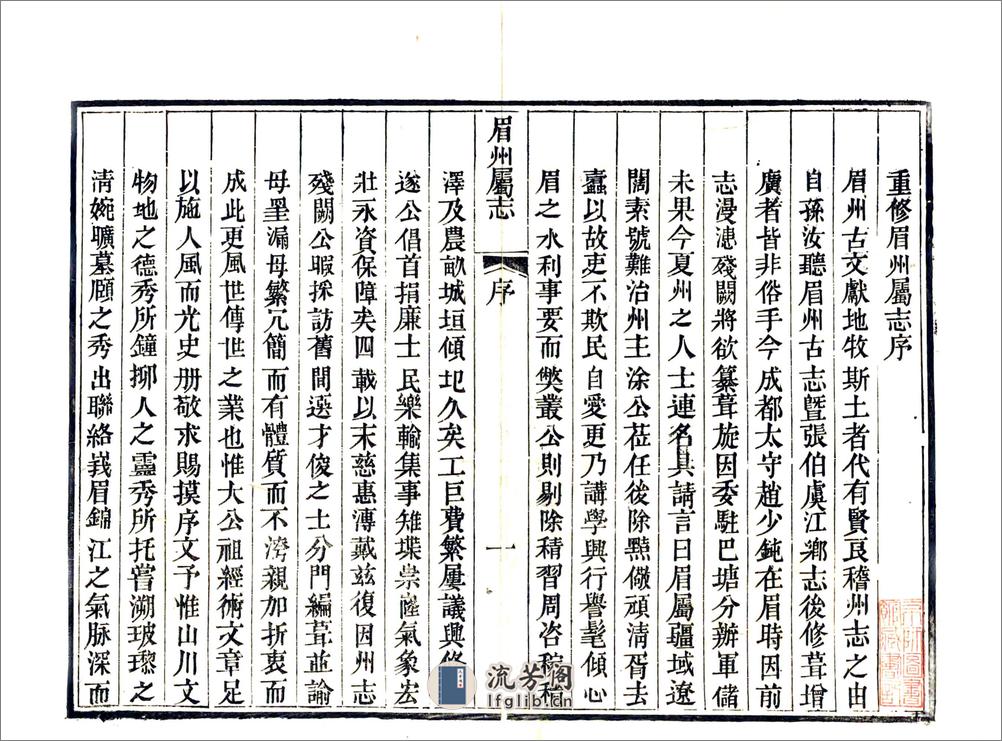 重修眉州屬志序
眉州古文獻地牧斯土者代有賢良稽州志之由
自孫汝聽眉州古志暨張伯虞江鄉志後修葺增
廣者皆非俗手今成都太守趙少鈍在眉時因前
志漫漶殘闕將欲纂葺旋因委駐巴塘分辦軍儲
未果今夏州之人士連名具請言曰眉屬疆域遼
闊素號難治州主涂公莅任後除黠儆頑淸胥去
蠹以故吏不欺民自愛更乃講學興行譽髦傾心
眉之水利事要而獘叢公則剔除積習周咨
眉州屬志
序
一
澤及農畝城垣傾圮久矣工巨費繁屢議興修
遂公倡首捐廉士民樂輸集事雉堞崇隆氣象宏
壯永資保障矣四載以末慈惠溥戴玆復因州志
殘闕公暇採訪舊聞選才俊之士分門編葺並諭
母罣漏母繁冗簡而有體質而不濟親加折衷而
成此更風世傳世之業也惟大公祖經術文章足
以施人風而光史册敬求賜摸序文予惟山川文
物地之德秀所鐘抑人之靈秀所托嘗溯玻瓈之
淸婉曠墓頤之秀出聯絡峩眉錦江之氣脉深而
流芳阁
lfglib.cn